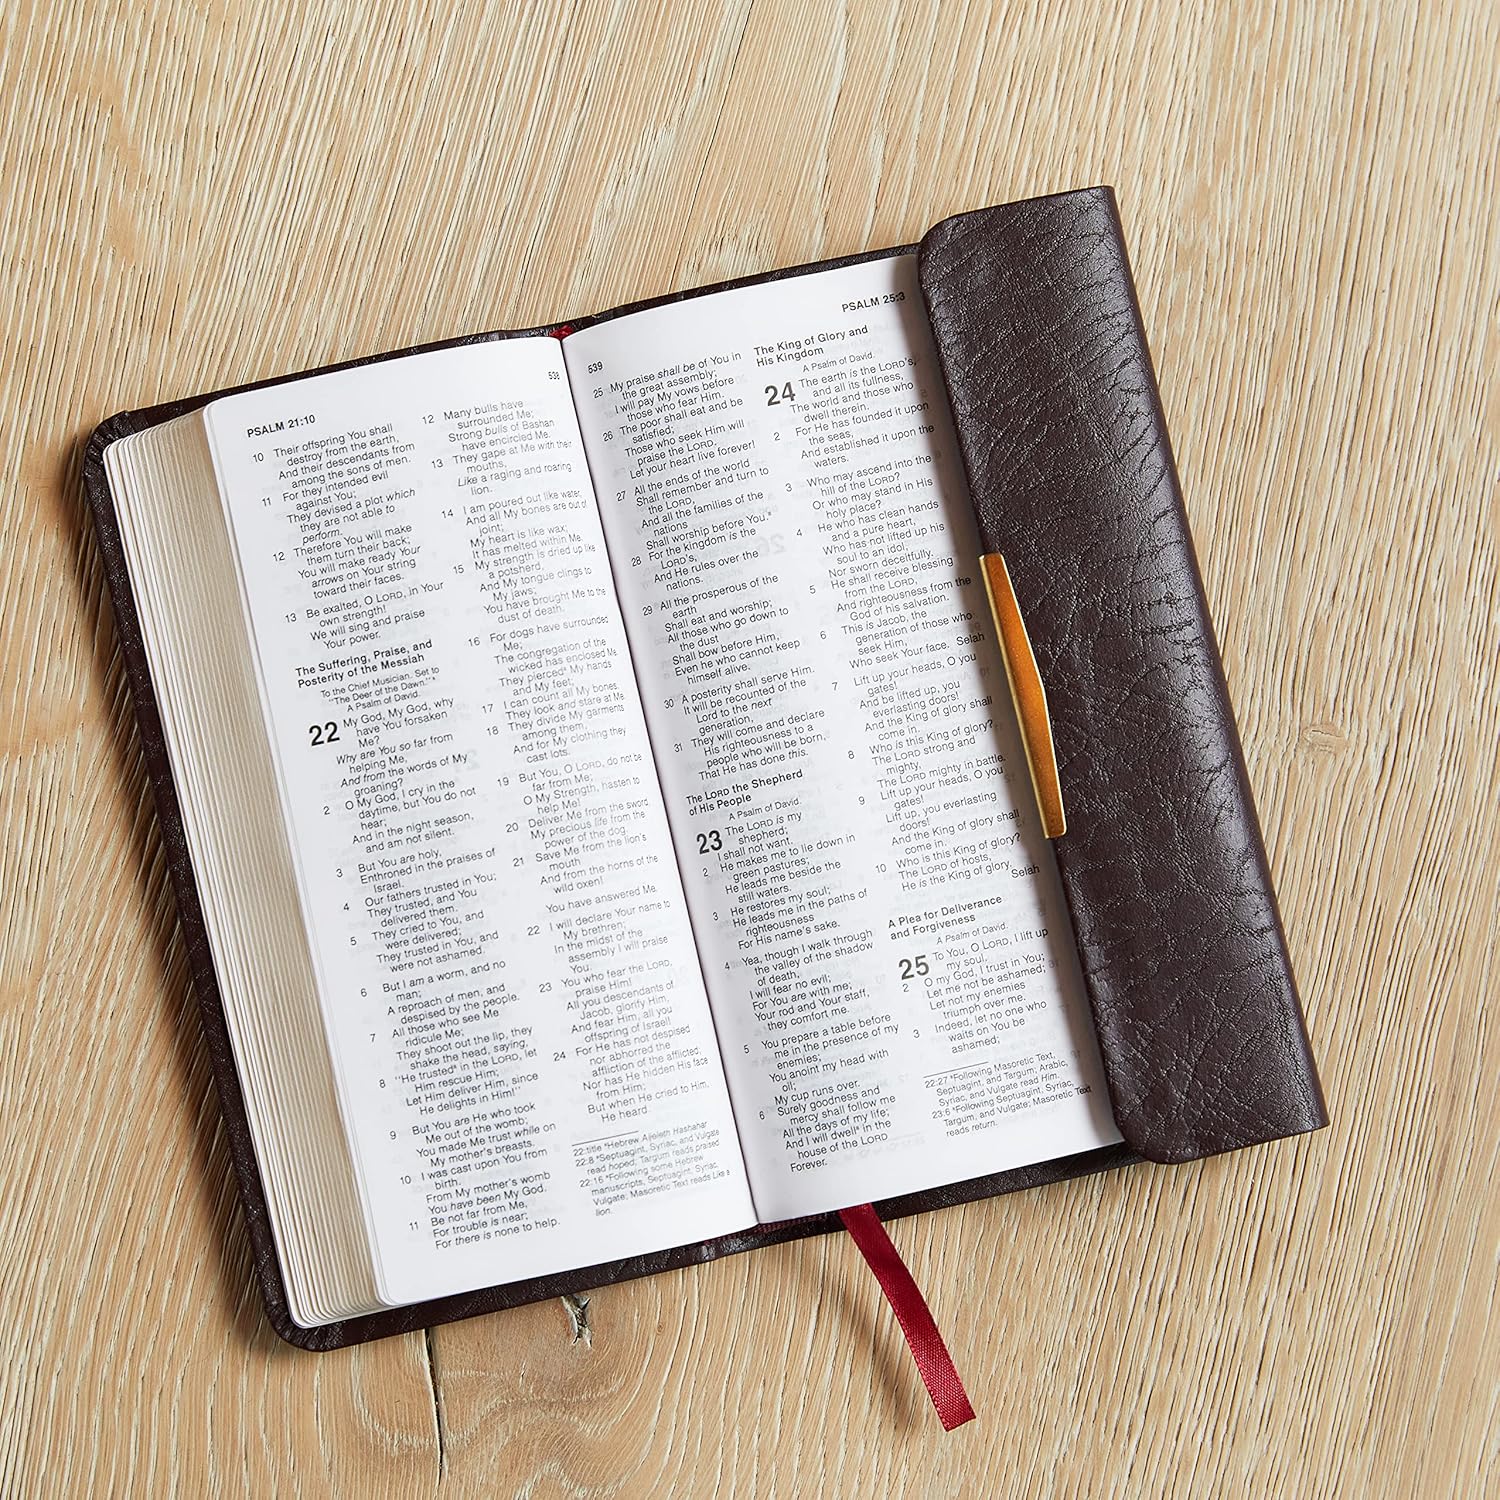 PSALM 21:10
538
10 Their offspring You shall
destroy from the earth,
And their descendants from
among the sons of men.
11 For they intended evil
against You;
They devised a plot which
they are not able to
perform.
12 Therefore You will make
them turn their back;
You will make ready Your
arrows on Your string
toward their faces.
13 Be exalted, O LORD, in Your
own strength!
We will sing and praise
Your power.
The Suffering, Praise, and
Posterity of the Messiah
To the Chief Musician. Set to
"The Deer of the Dawn."*
A Psalm of David.
22 My God, My God, why
have You forsaken
Me?
Why are You so far from
helping Me,
And from the words of My
groaning?
2 O My God, I cry in the
daytime, but You do not
hear;
And in the night season,
and am not silent.
3 But You are holy,
Enthroned in the praises of
Israel.
4 Our fathers trusted in You;
They trusted, and You
delivered them.
5 They cried to You, and
were delivered;
They trusted in You, and
were not ashamed.
6 But I am a worm, and no
man;
A reproach of men, and
despised by the people.
7 All those who see Me
ridicule Me;
They shoot out the lip, they
shake the head, saying,
8 "He trusted* in the LORD, let
Him rescue Him;
Let Him deliver Him, since
He delights in Him!"
9 But You are He who took
Me out of the womb;
You made Me trust while on
My mother's breasts.
10 I was cast upon You from
birth.
From My mother's womb
You have been My God.
11 Be not far from Me,
For trouble is near;
For there is none to help.
12 Many bulls have
surrounded Me;
Strong bulls of Bashan
have encircled Me.
13 They gape at Me with their
mouths,
Like a raging and roaring
lion.
14 I am poured out like water,
And all My bones are out of
joint;
My heart is like wax;
It has melted within Me.
15 My strength is dried up like
a potsherd,
And My tongue clings to
My jaws;
You have brought Me to the
dust of death.
16 For dogs have surrounded
Me;
The congregation of the
wicked has enclosed Me.
They pierced* My hands
and My feet;
17 I can count all My bones.
They look and stare at Me.
18 They divide My garments
among them,
And for My clothing they
cast lots.
19 But You, O LORD, do not be
far from Me;
O My Strength, hasten to
help Me!
20 Deliver Me from the sword,
My precious life from the
power of the dog.
21 Save Me from the lion's
mouth
And from the horns of the
wild oxen!
You have answered Me.
22 I will declare Your name to
My brethren;
In the midst of the
assembly I will praise
You.
23 You who fear the LORD,
praise Him!
All you descendants of
Jacob, glorify Him,
And fear Him, all you
offspring of Israel!
24 For He has not despised
nor abhorred the
affliction of the afflicted;
Nor has He hidden His face
from Him;
But when He cried to Him,
He heard.
22:title *Hebrew Aijeleth Hashahar
22:8 *Septuagint, Syriac, and Vulgate
read hoped; Targum reads praised.
22:16 *Following some Hebrew
manuscripts, Septuagint, Syriac,
Vulgate; Masoretic Text reads Like a
lion.
539
PSALM 25:3
25 My praise shall be of You in
the great assembly;
I will pay My vows before
those who fear Him.
26 The poor shall eat and be
satisfied;
Those who seek Him will
praise the LORD.
Let your heart live forever!
27 All the ends of the world
Shall remember and turn to
the LORD,
And all the families of the
nations
Shall worship before You.*
28 For the kingdom is the
LORD's,
And He rules over the
nations.
29 All the prosperous of the
earth
Shall eat and worship;
All those who go down to
the dust
Shall bow before Him,
Even he who cannot keep
himself alive.
30 A posterity shall serve Him.
It will be recounted of the
Lord to the next
generation,
31 They will come and declare
His righteousness to a
people who will be born,
That He has done this.
The LORD the Shepherd
of His People
A Psalm of David.
23 The LORD is my
shepherd;
I shall not want.
2 He makes me to lie down in
green pastures;
He leads me beside the
still waters.
3 He restores my soul;
He leads me in the paths of
righteousness
For His name's sake.
4 Yea, though I walk through
the valley of the shadow
of death,
I will fear no evil;
For You are with me;
Your rod and Your staff,
they comfort me.
5 You prepare a table before
me in the presence of my
enemies;
You anoint my head with
oil;
My cup runs over.
6 Surely goodness and
mercy shall follow me
All the days of my life;
And I will dwell* in the
house of the LORD
Forever.
The King of Glory and
His Kingdom
A Psalm of David.
24 The earth is the LORD's,
and all its fullness,
The world and those who
dwell therein.
2 For He has founded it upon
the seas,
And established it upon the
waters.
3 Who may ascend into the
hill of the LORD?
Or who may stand in His
holy place?
4 He who has clean hands
and a pure heart,
Who has not lifted up his
soul to an idol,
Nor sworn deceitfully.
5 He shall receive blessing
from the LORD,
And righteousness from the
God of his salvation.
6 This is Jacob, the
generation of those who
seek Him,
Who seek Your face. Selah
7 Lift up your heads, O you
gates!
And be lifted up, you
everlasting doors!
And the King of glory shall
come in.
8 Who is this King of glory?
The LORD strong and
mighty,
The LORD mighty in battle.
9 Lift up your heads, O you
gates!
Lift up, you everlasting
doors!
And the King of glory shall
come in.
10 Who is this King of glory?
The LORD of hosts,
He is the King of glory.
Selah
A Plea for Deliverance
and Forgiveness
A Psalm of David.
25 To You, O LORD, I lift up
my soul.
2 O my God, I trust in You;
Let me not be ashamed;
Let not my enemies
triumph over me.
3 Indeed, let no one who
waits on You be
ashamed;
22:27 *Following Masoretic Text,
Septuagint, and Targum; Arabic,
Syriac, and Vulgate read Him.
23:6 *Following Septuagint, Syriac,
Targum, and Vulgate; Masoretic Text
reads return.